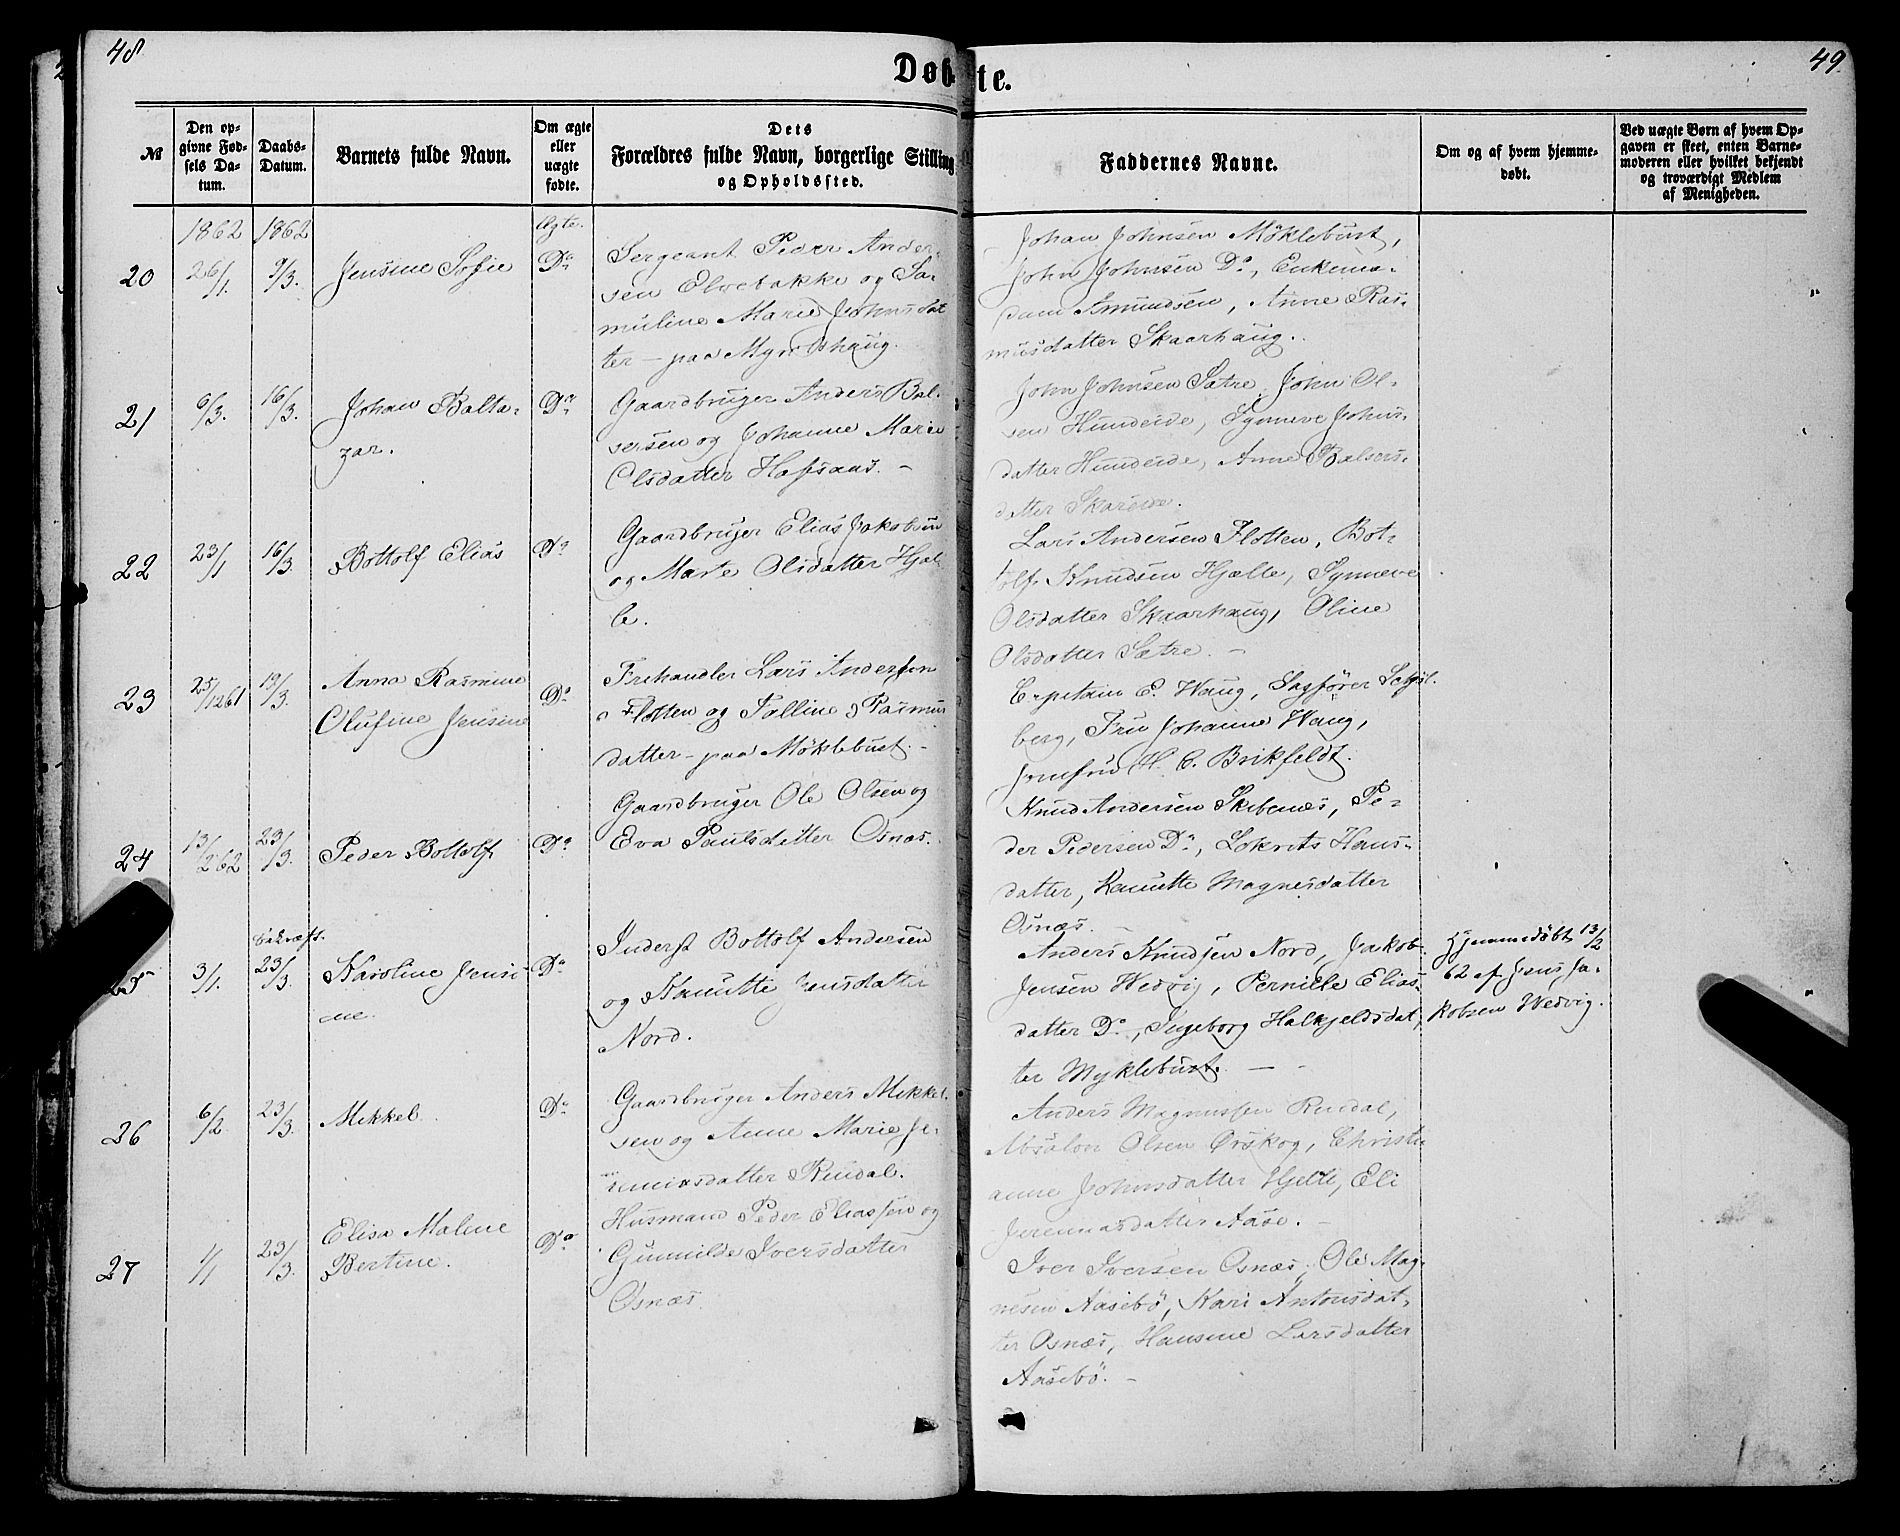 48
Døbte.
49.
№
Den op-
givne Fød-
sels Da-
tum.
Daabs-
Datum.
Barnets fulde Navn.
Om ægte
eller
uægte
fødte.
Dets
Forældres fulde Navn, borgerlige Stilling
og Opholdssted.
Faddernes Navne.
Om og af hvem hjemme-
døbt.
Ved uægte Børn af hvem Op-
gaven er skeet, enten Barne-
moderen eller hvilket bekjendt
og troværdigt Medlem
af Menigheden.
1862 1862 Ægte.
20 26/1. 9/3. Jensine Sofie Do
Sergeant Peder Ander-
sen Elvebakke og Sa-
muline Marie Johnsdat
ter - paa
Johan Johnsen Møklebust,
John Johnsen Do, Enkema-
dam Amundsen, Anne Ras-
musdatter Skaarhaug.
21 6/3. 16/3. Johan Balta-
zar.
Do
Gaardbruger Anders Bal-
sersen og Johanne Marie
Olsdatter
John Johnsen Sætre, John Ol-
sen Hundeide, Synneve Johns-
datter Hundeide, Anne Balsers-
datter Skareide.
22 23/1 16/3. Bottolf Elias Do
Gaardbruger Elias Jakobsen
og Marte Olsdatter Hjel-
le.
Lars Andersen Flotten, Bot-
tolf Knudsen Hjelle, Synneve
Olsdatter Skaarhaug, Oline
Olsdatter Sætre. -
23 25/12 61 19/3. Anna Rasmine
Olufine Jensine
Do
Frihandler Lars Andersen
Flotten og Talline Rasmus
datter - paa Møklebust. -
Capitain C. Haug, Sagfører
berg, Fru Johanne Haug,
Jomfru H. C. Brikfeldt.
24 13/2 62 23/3. Peder Bottolf Do
Gaardbruger Ole Olsen og
Eva Paulsdatter Osnæs.
Knud Andersen Skibenæs, Pe-
der Pedersen Do, Hans-
datter, Kanutte Magnesdatter
Osnæs. -
25 3/1. bekræft. 23/3. Karoline Jensi-
ne.
Do
Inderst Bottolf Andersen
og Kanutte Jensdatter
Nord.
Anders Knudsen Nord, Jakob
Jensen Wedvig, Pernille Elias-
datter Do, Ingeborg Halkjeldsdat-
ter Myklebust. -
Hjemmedøbt 13/2
62 af Jens Ja-
kobsen Wedvig.
26 6/2. 23/3. Mikkel. Do
Gaardbruger Anders Mikkel-
sen og Anne Marie Je-
remiasdatter Rindal.
Anders Magnussen Rindal,
Absalon Olsen Ørskog, Christi
anne Johnsdatter Hjelle, Eli
Jeremiasdatter Aase. -
27 1/1 23/3. Elisa Malene
Bertine.
Do
Husmand Peder Eliassen og
Gunnilde Iversdatter
Osnæs
Iver Iversen Osnæs, Ole Mag-
nesen Aasebø, Kari Antonsdat-
ter Osnæs, Hansine Larsdatter
Aasebø. -